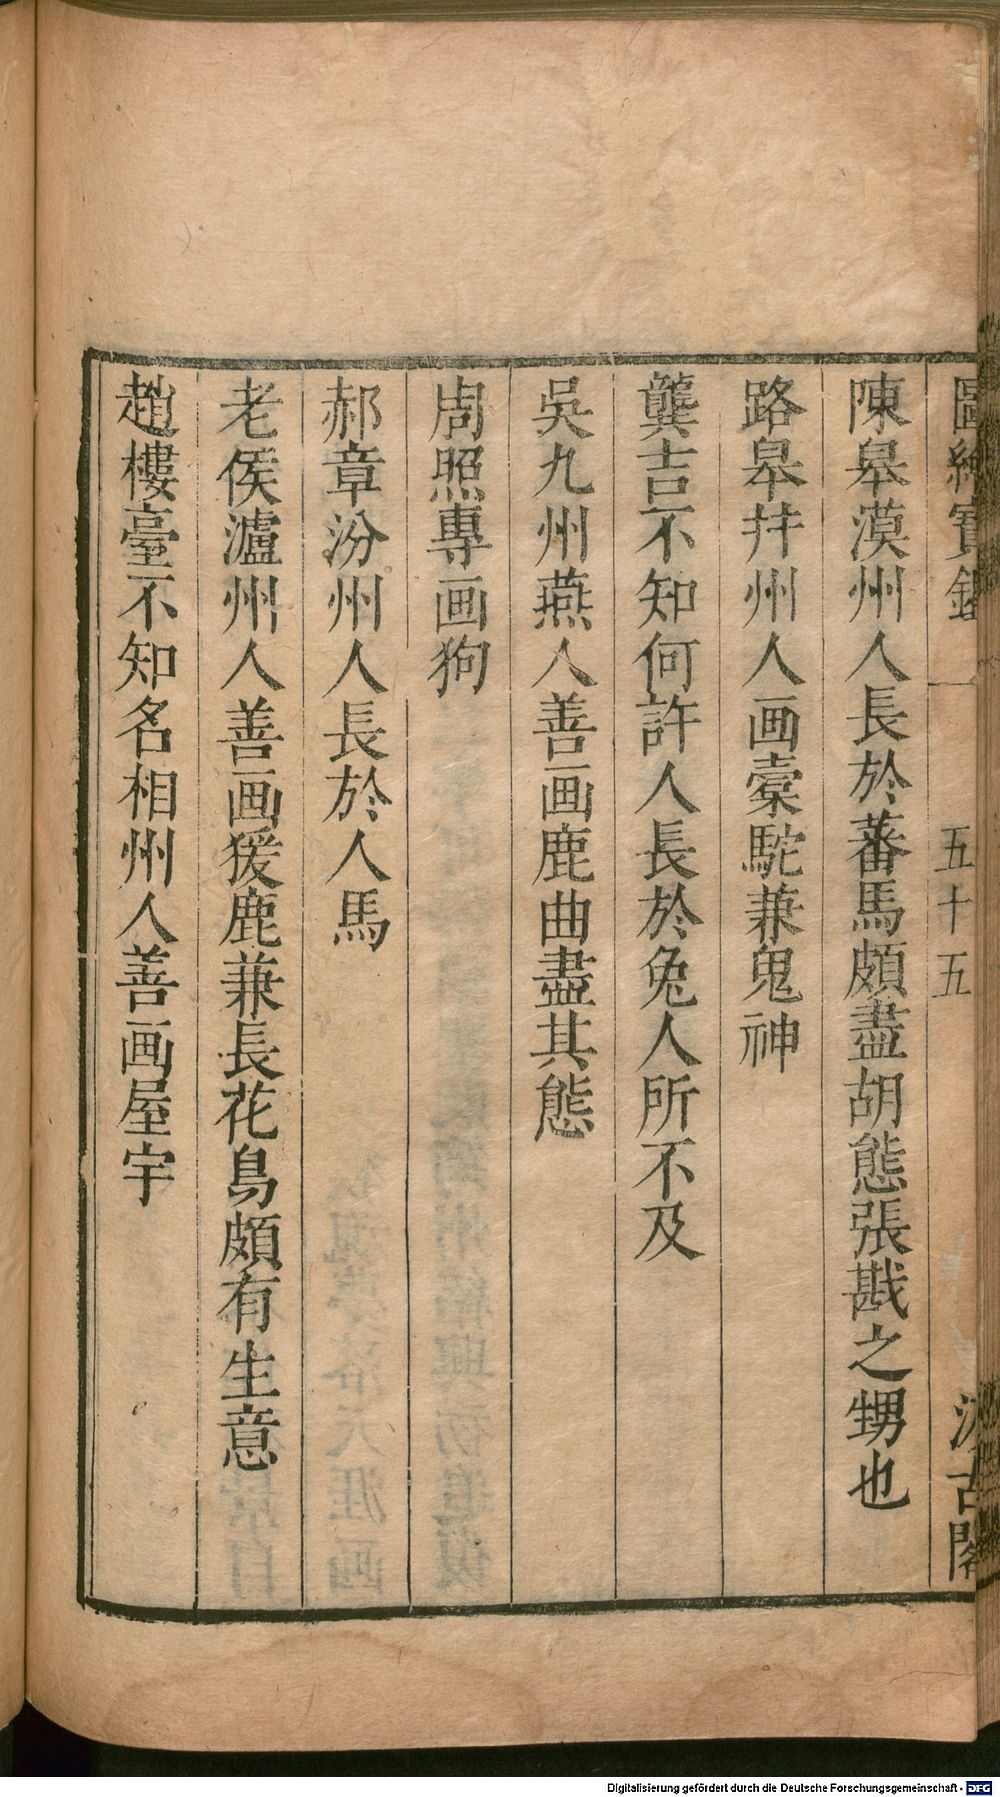 圖繪寶鑑
五十五
汲古閣
陳皋漠州人長於蕃馬頗盡胡態張戡之甥也
路皋并州人画橐駝兼鬼神
龔吉不知何許人長於兔人所不及
吳九州燕人善画鹿曲盡其態
周照專画狗
郝章汾州人長於人馬
老侯瀘州人善画猨鹿兼長花鳥頗有生意
趙樓臺不知名相州人善画屋宇
Digitalisierung gefördert durch die Deutsche Forschungsgemeinschaft - DFG